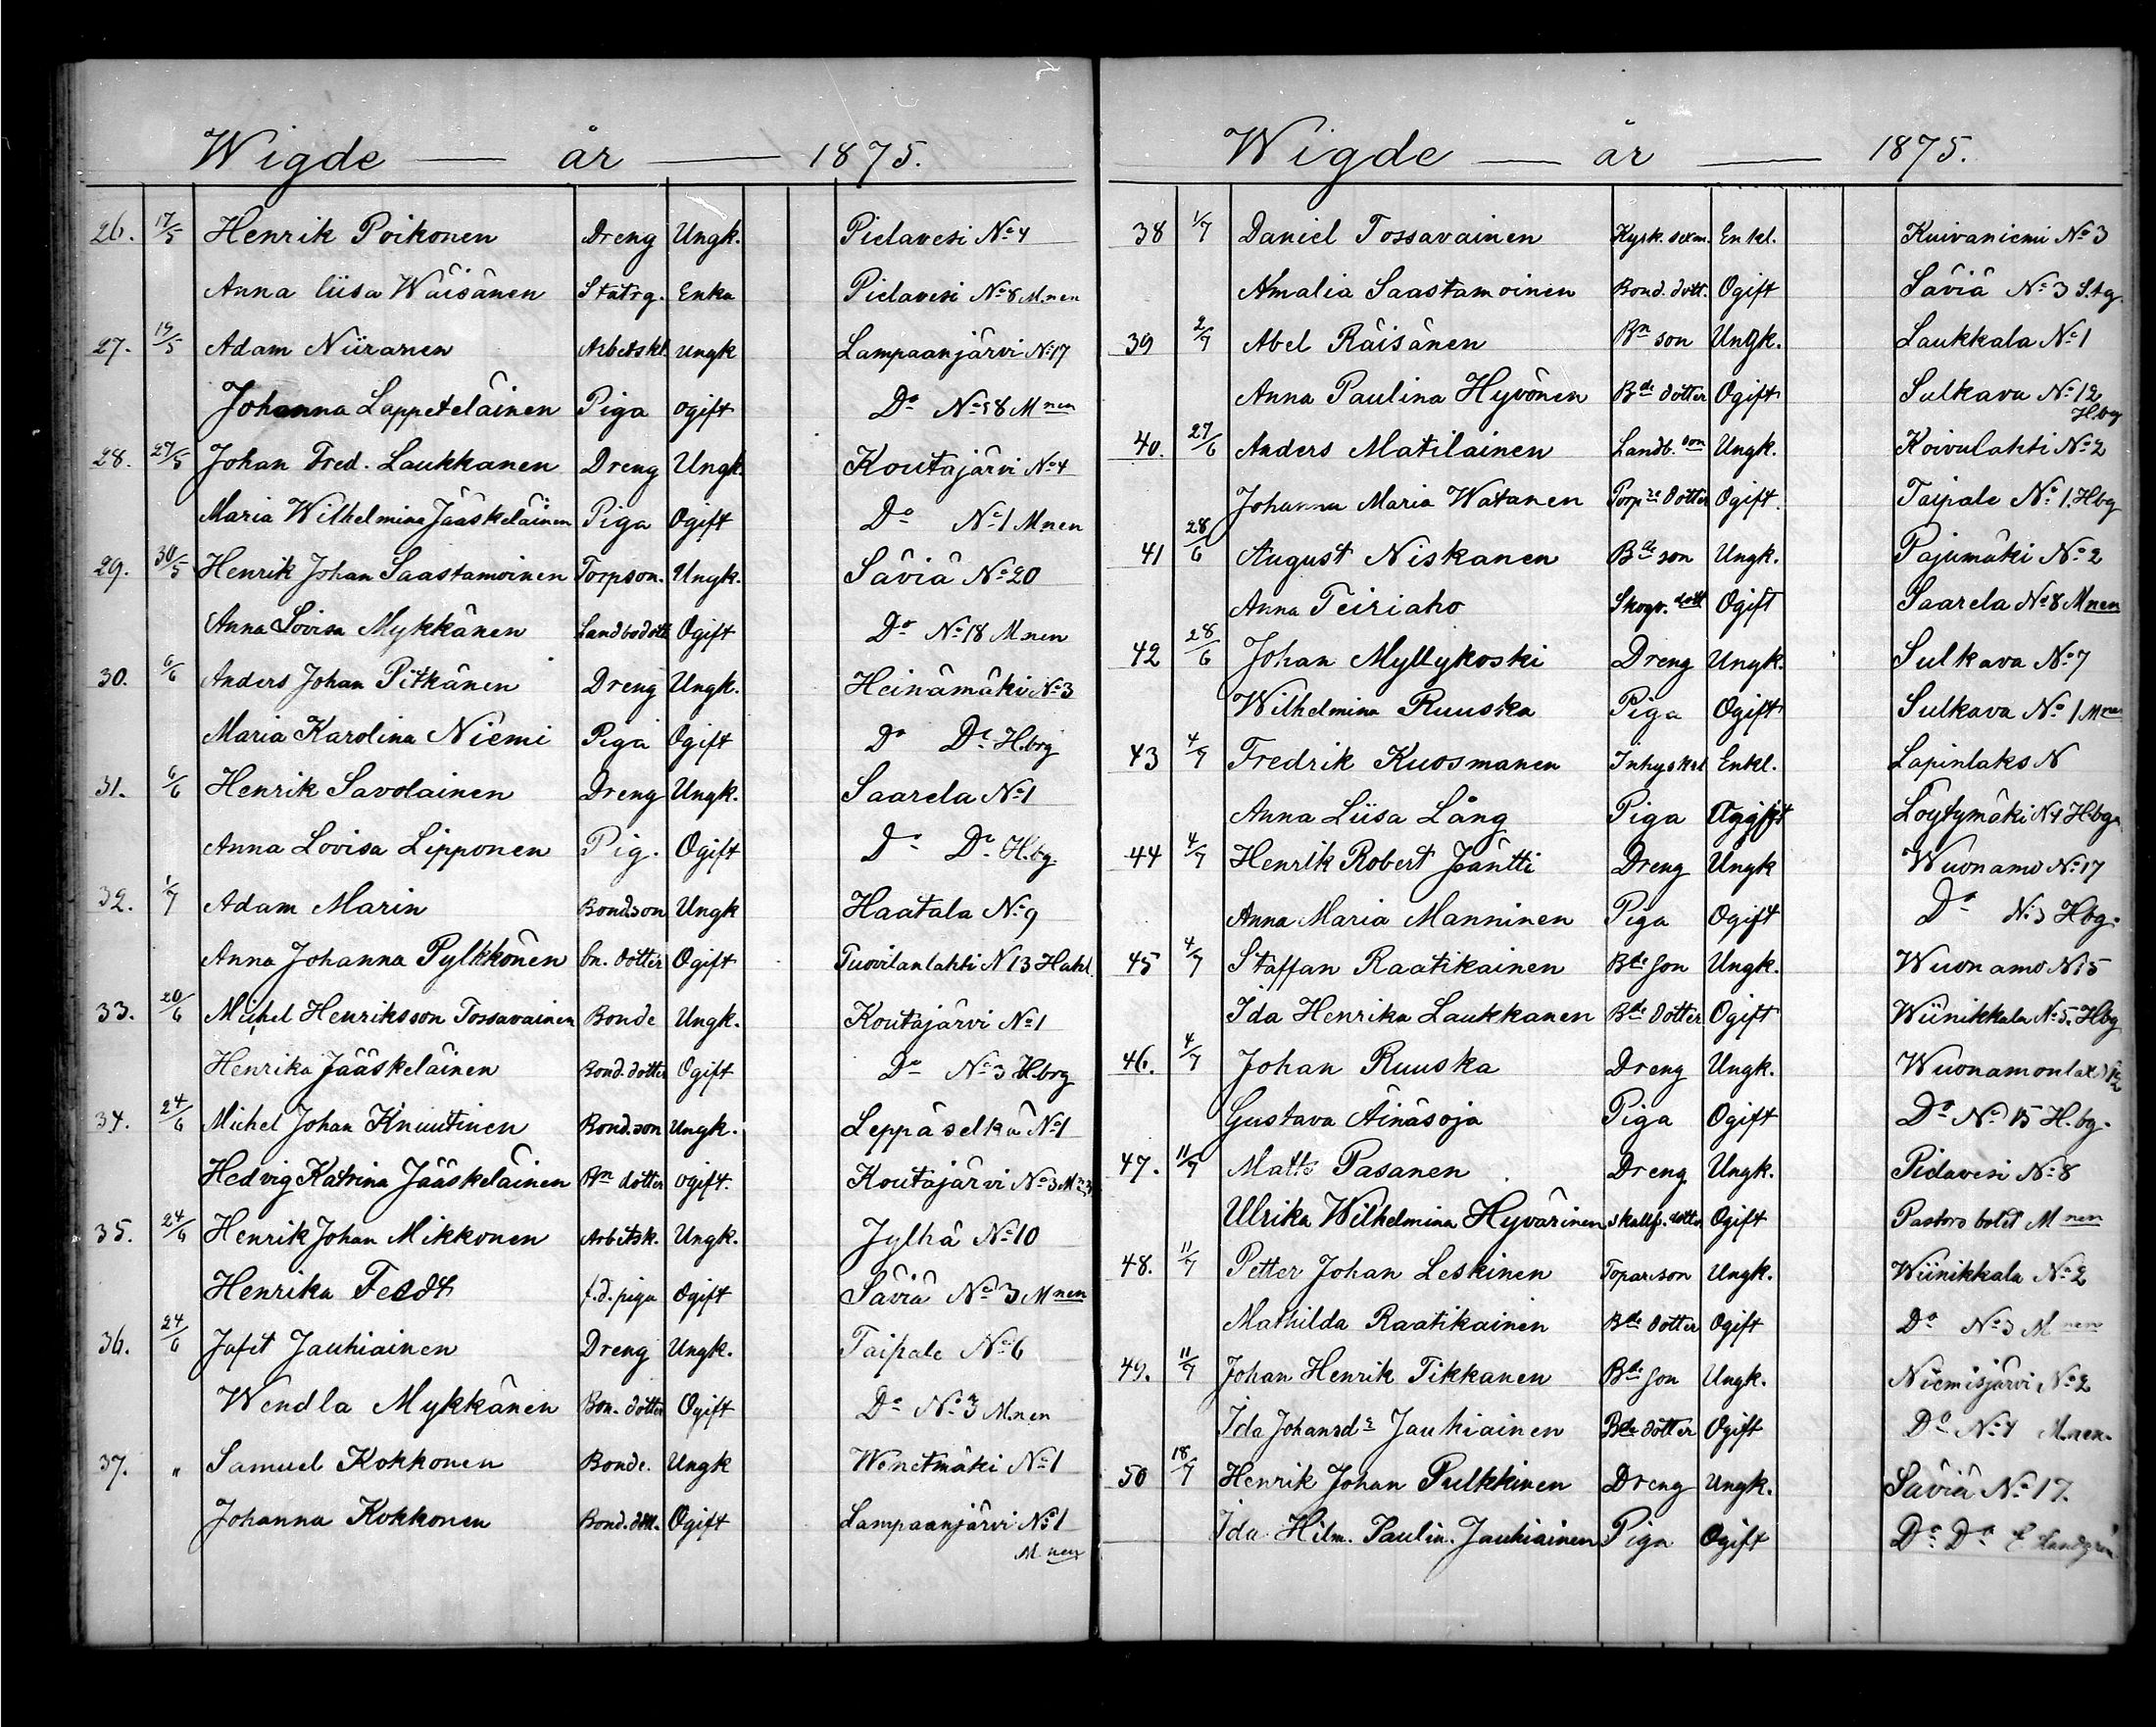 Wigde — år — 1875.
26. 17/5 Henrik Poikonen Dreng Ungk. Pielavesi No 4
Anna Liisa Wäisänen Statrg. Enka Pielavesi No 8 Mnen
27. 19/5 Adam Niiranen Arbetskl. ungk Lampaanjärvi No 17
Johanna Lappeteläinen Piga ogift Do No 8 Mnen
28. 27/5 Johan Fred. Laukkanen Dreng Ungk. Koutajärvi No 4
Maria Wilhelmina Jääskeläinen Piga Ogift Do No 1 Mnen
29. 30/5 Henrik Johan Saastamoinen Torpson. Ungk. Säviä No 20
Anna Lovisa Mykkänen Landbodott Ogift Do No 18 Mnen
30. 6/6 Anders Johan Pitkänen Dreng Ungk. Heinämäki No 3
Maria Karolina Niemi Piga Ogift Do Do H.brg
31. 6/6 Henrik Savolainen Dreng Ungk. Saarela No 1
Anna Lovisa Lipponen Pig. Ogift Do Do H.bg.
32. 1/7 Adam Marin Bond.son Ungk Haatala No 9
Anna Johanna Pylkkönen bn. dotter Ogift Tuovilanlahti N 13 Hahl.
33. 20/6 Michel Henriksson Tossavainen Bonde Ungk. Koutajärvi No 1
Henrika Jääskeläinen Bond.dotter Ogift Do No 3 H.brg
34. 24/6 Michel Johan Knuutinen Bond.son Ungk. Leppäselkä No 1
Hedvig Katrina Jääskeläinen Bn dotter ogift. Koutajärvi No 3 Mnen
35. 24/6 Henrik Johan Mikkonen Arbetsk. Ungk. Jylhä No 10
Henrika Feldt f.d. piga Ogift Säviä No 3 Mnen
36. 24/6 Jafet Jauhiainen Dreng Ungk. Taipale No 6
Wendla Mykkänen Bon. dotter Ogift Do No 3 Mnen
37. " Samuel Kokkonen Bonde. Ungk Wenetmäki No 1
Johanna Kokkonen Bond.dott. Ogift Lampaanjärvi No 1
Mnen
Wigde — år — 1875.
38 1/7 Daniel Tossavainen Kyrk.sexm. Enkl. Kuivaniemi No 3
Amalia Saastamoinen Bond. dott. Ogift Säviä No 3 S.tg.
39 2/7 Abel Räisänen Bn son Ungk. Laukkala No 1
Anna Paulina Hyvönen Bde dotter Ogift Sulkava No 12
H.bg
40. 27/6 Anders Matilainen Landb. son Ungk. Koivulahti No 2
Johanna Maria Watanen Torpre dotter Ogift. Taipale No 1. Hbg
41 28/6 August Niskanen Bde son Ungk. Pajumäki No 2
Anna Teiriaho Skogv. dott Ogift Saarela No 8 Mnen
42 28/6 Johan Myllykoski Dreng Ungk. Sulkava No 7
Wilhelmina Ruuska Piga Ogift Sulkava No 1 Mnen
43 4/7 Fredrik Kuosmanen Inhyskrl Enkl. Lapinlaks N
Anna Liisa Lång Piga Ogift Löytymäki N 4 H.bg.
44 4/7 Henrik Robert Jäntti Dreng Ungk Wuonamo No 17
Anna Maria Manninen Piga Ogift Do No 3 H.bg.
45 4/7 Staffan Raatikainen Bde Son Ungk. Wuonamo No 5
Ida Henrika Laukkanen Bde dotter Ogift Wiinikkala No 5. Hbg
46. 4/7 Johan Ruuska Dreng Ungk. Wuonamonlax
Gustava Äinäsoja Piga Ogift Do No 15 H.bg.
47. 11/7 Matts Pasanen Dreng Ungk. Pielavesi No 8
Ulrika Wilhelmina Hyvärinen skallf. dotter Ogift Pastors bolet Mnen
48. 11/7 Petter Johan Leskinen Toparson Ungk. Wiinikkala No 2
Mathilda Raatikainen Bde dotter Ogift Do No 3 Mnen
49. 11/7 Johan Henrik Tikkanen Bde Son Ungk. Niemisjärvi No 2
Ida Johansdr Jauhiainen Bde dotter Ogift Do No 4 Mnen.
50 18/7 Henrik Johan Pulkkinen Dreng Ungk. Säviä No 17.
Ida Hilm. Paulin. Jauhiainen Piga Ogift Do Do